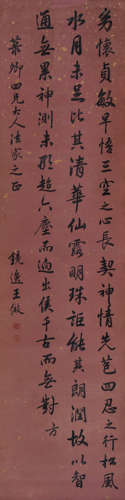 幼懷貞敏早悟三空之心長契神情先苞四忍之行松風
水月未足比其清華仙露明珠詎能其朗潤故以智
通無累神測未形超六塵而迥出千古而無對 方
卿四兄大人法家之正
鏡逸王